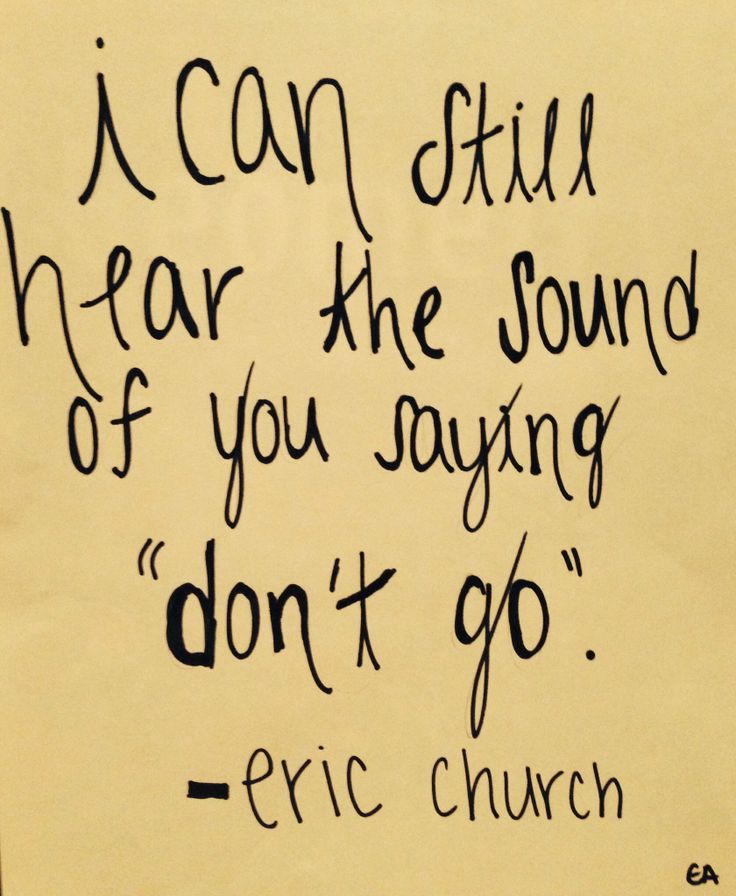 i can still
hear the sound
of you saying
"don't go".
-eric church
EA